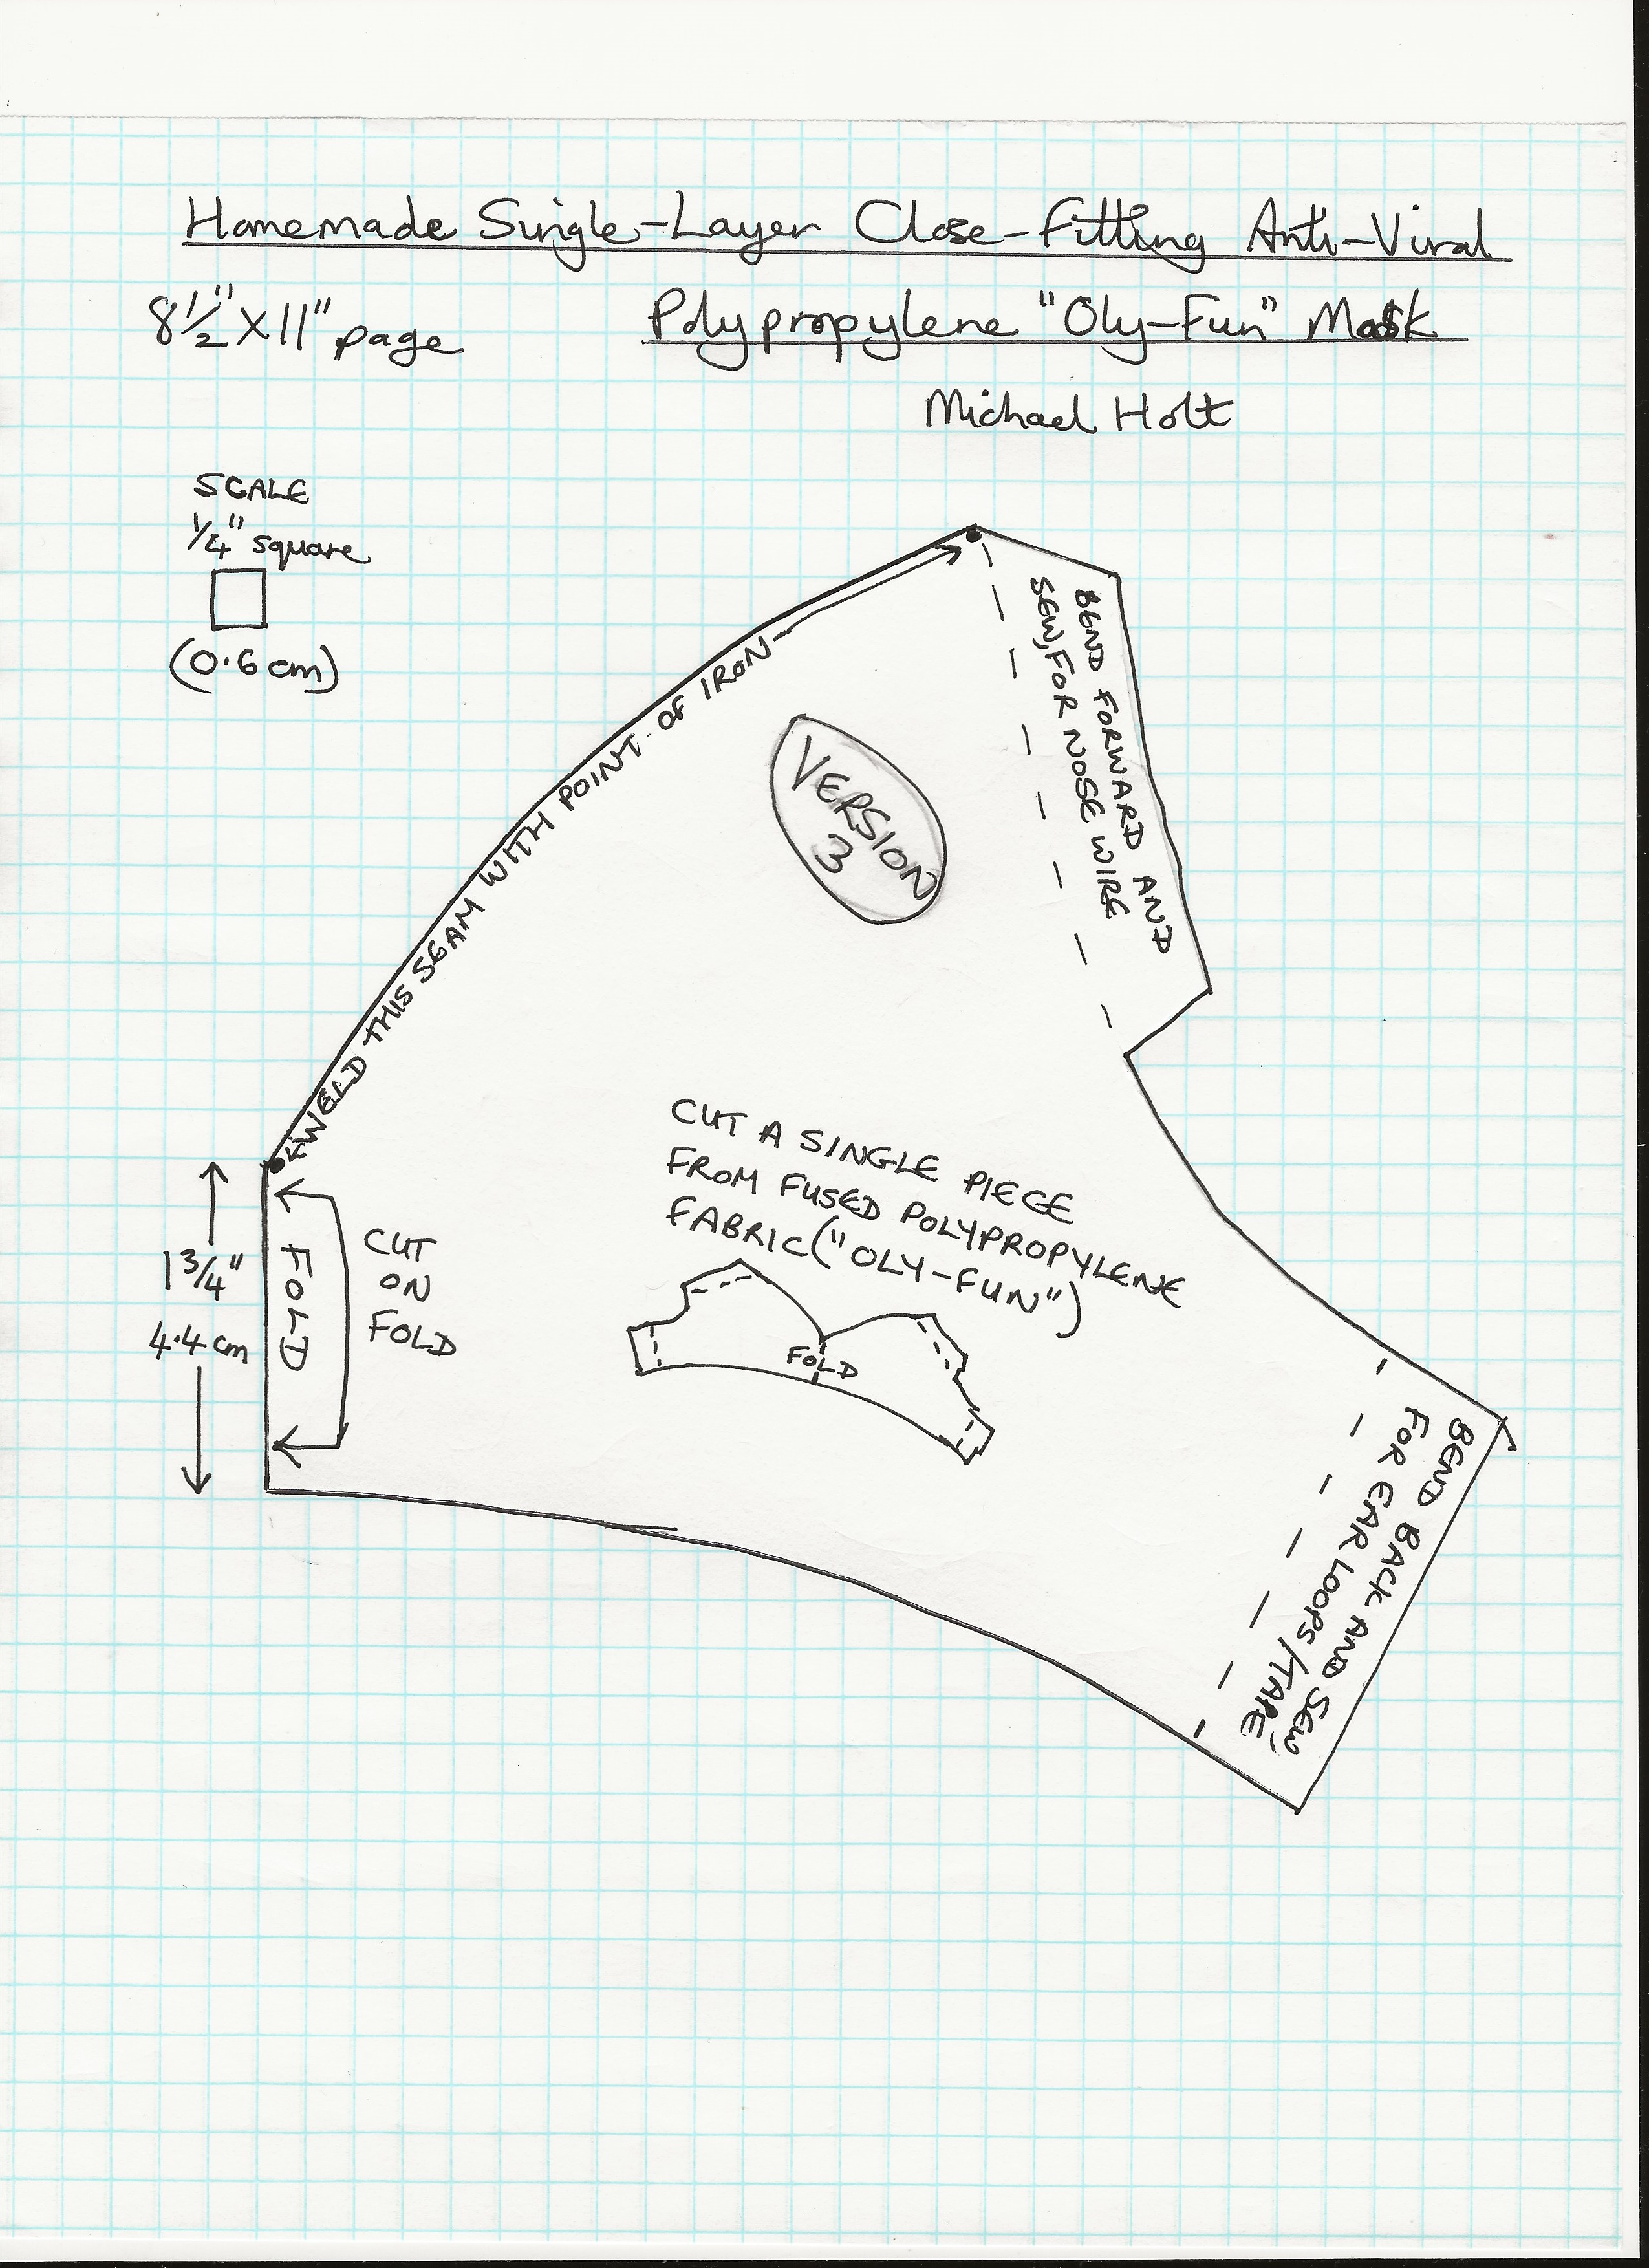 Homemade Single-Layer Close-Fitting Anti-Viral
8½" X 11" page
Polypropylene "Oly-Fun" Mask
Michael Holt
SCALE
¼" square
(0.6 cm)
WELD THIS SEAM WITH POINT OF IRON
BEND FORWARD AND
SEW, FOR NOSE WIRE
VERSION
3
CUT A SINGLE PIECE
FROM FUSED POLYPROPYLENE
FABRIC ("OLY-FUN")
FOLD
1¾"
4.4 cm
FOLD
CUT
ON
FOLD
BEND BACK AND SEW
FOR EAR LOOPS/TAPE